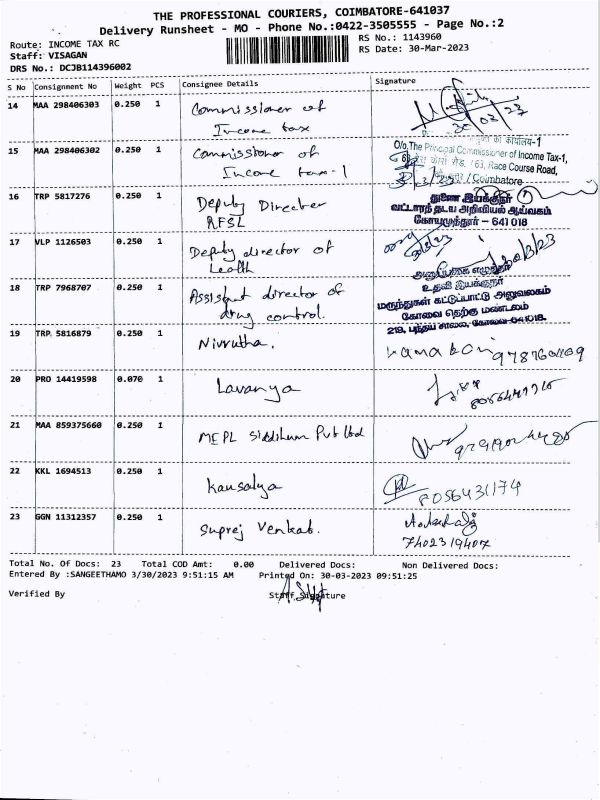 THE PROFESSIONAL COURIERS, COIMBATORE-641037
Delivery Runsheet - MO - Phone No.:0422-3505555 - Page No.:2
Route: INCOME TAX RC
RS No.: 1143960
Staff: VISAGAN
RS Date: 30-Mar-2023
DRS No.: DCJB114396002
S No Consignment No Weight PCS Consignee Details Signature
14 MAA 298406303 0.250 1 Commissioner of
Income tax
15 MAA 298406302 0.250 1 Commissioner of
Income tax-1
O/o.The Principal Commissioner of Income Tax-1,
63, Race Course Road,
Coimbatore
16 TRP 5817276 0.250 1 Deputy Director
RFSL
துணை இயக்குநர்
வட்டாரத் தடய அறிவியல் ஆய்வகம்
கோயமுத்தூர் – 641 018
17 VLP 1126503 0.250 1 Deputy director of
18 TRP 7968707 0.250 1 Assistant director of
drug control.
உதவி இயக்குநர்
மருந்துகள் கட்டுப்பாட்டு அலுவலகம்
கோவை தெற்கு மண்டலம்
219, பந்தய சாலை, கோவை-641018.
19 TRP 5816879 0.250 1 Nivrutha.
20 PRO 14419598 0.070 1 Lavanya
21 MAA 859375660 0.250 1 MEPL Siddihum Pvt Ltd
22 KKL 1694513 0.250 1 Kausalya
8056431174
23 GGN 11312357 0.250 1 Suprej Venkat.
7402319407
Total No. Of Docs: 23 Total COD Amt: 0.00 Delivered Docs: Non Delivered Docs:
Entered By :SANGEETHAMO 3/30/2023 9:51:15 AM Printed On: 30-03-2023 09:51:25
Verified By Staff Signature